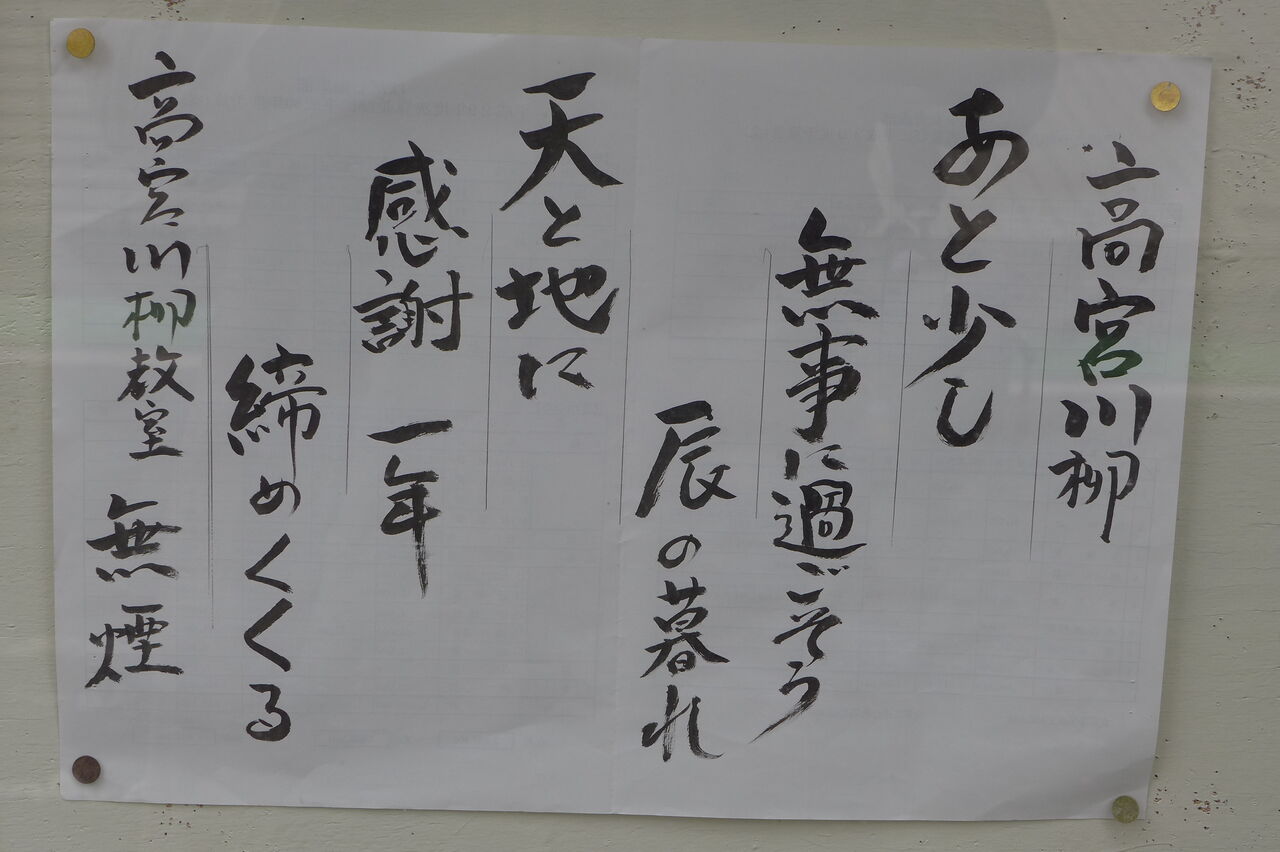 高宮川柳
あと少し
無事に過ごそう
辰の暮れ
天と地に
感謝 一年
締めくくる
高宮川柳教室 無煙